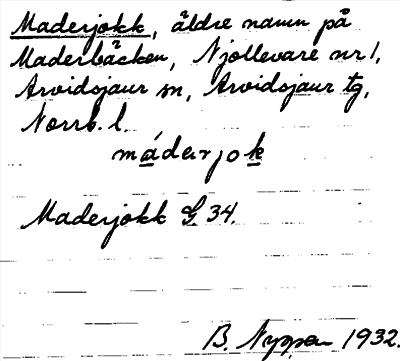 Maderjokk, äldre namn på
Maderbäcken, Njollevare nr 1,
Arvidsjaur sn, Arvidsjaur tg,
Norrb. l.
máderjok
Maderjokk G 34.
B. Nyppen 1932.